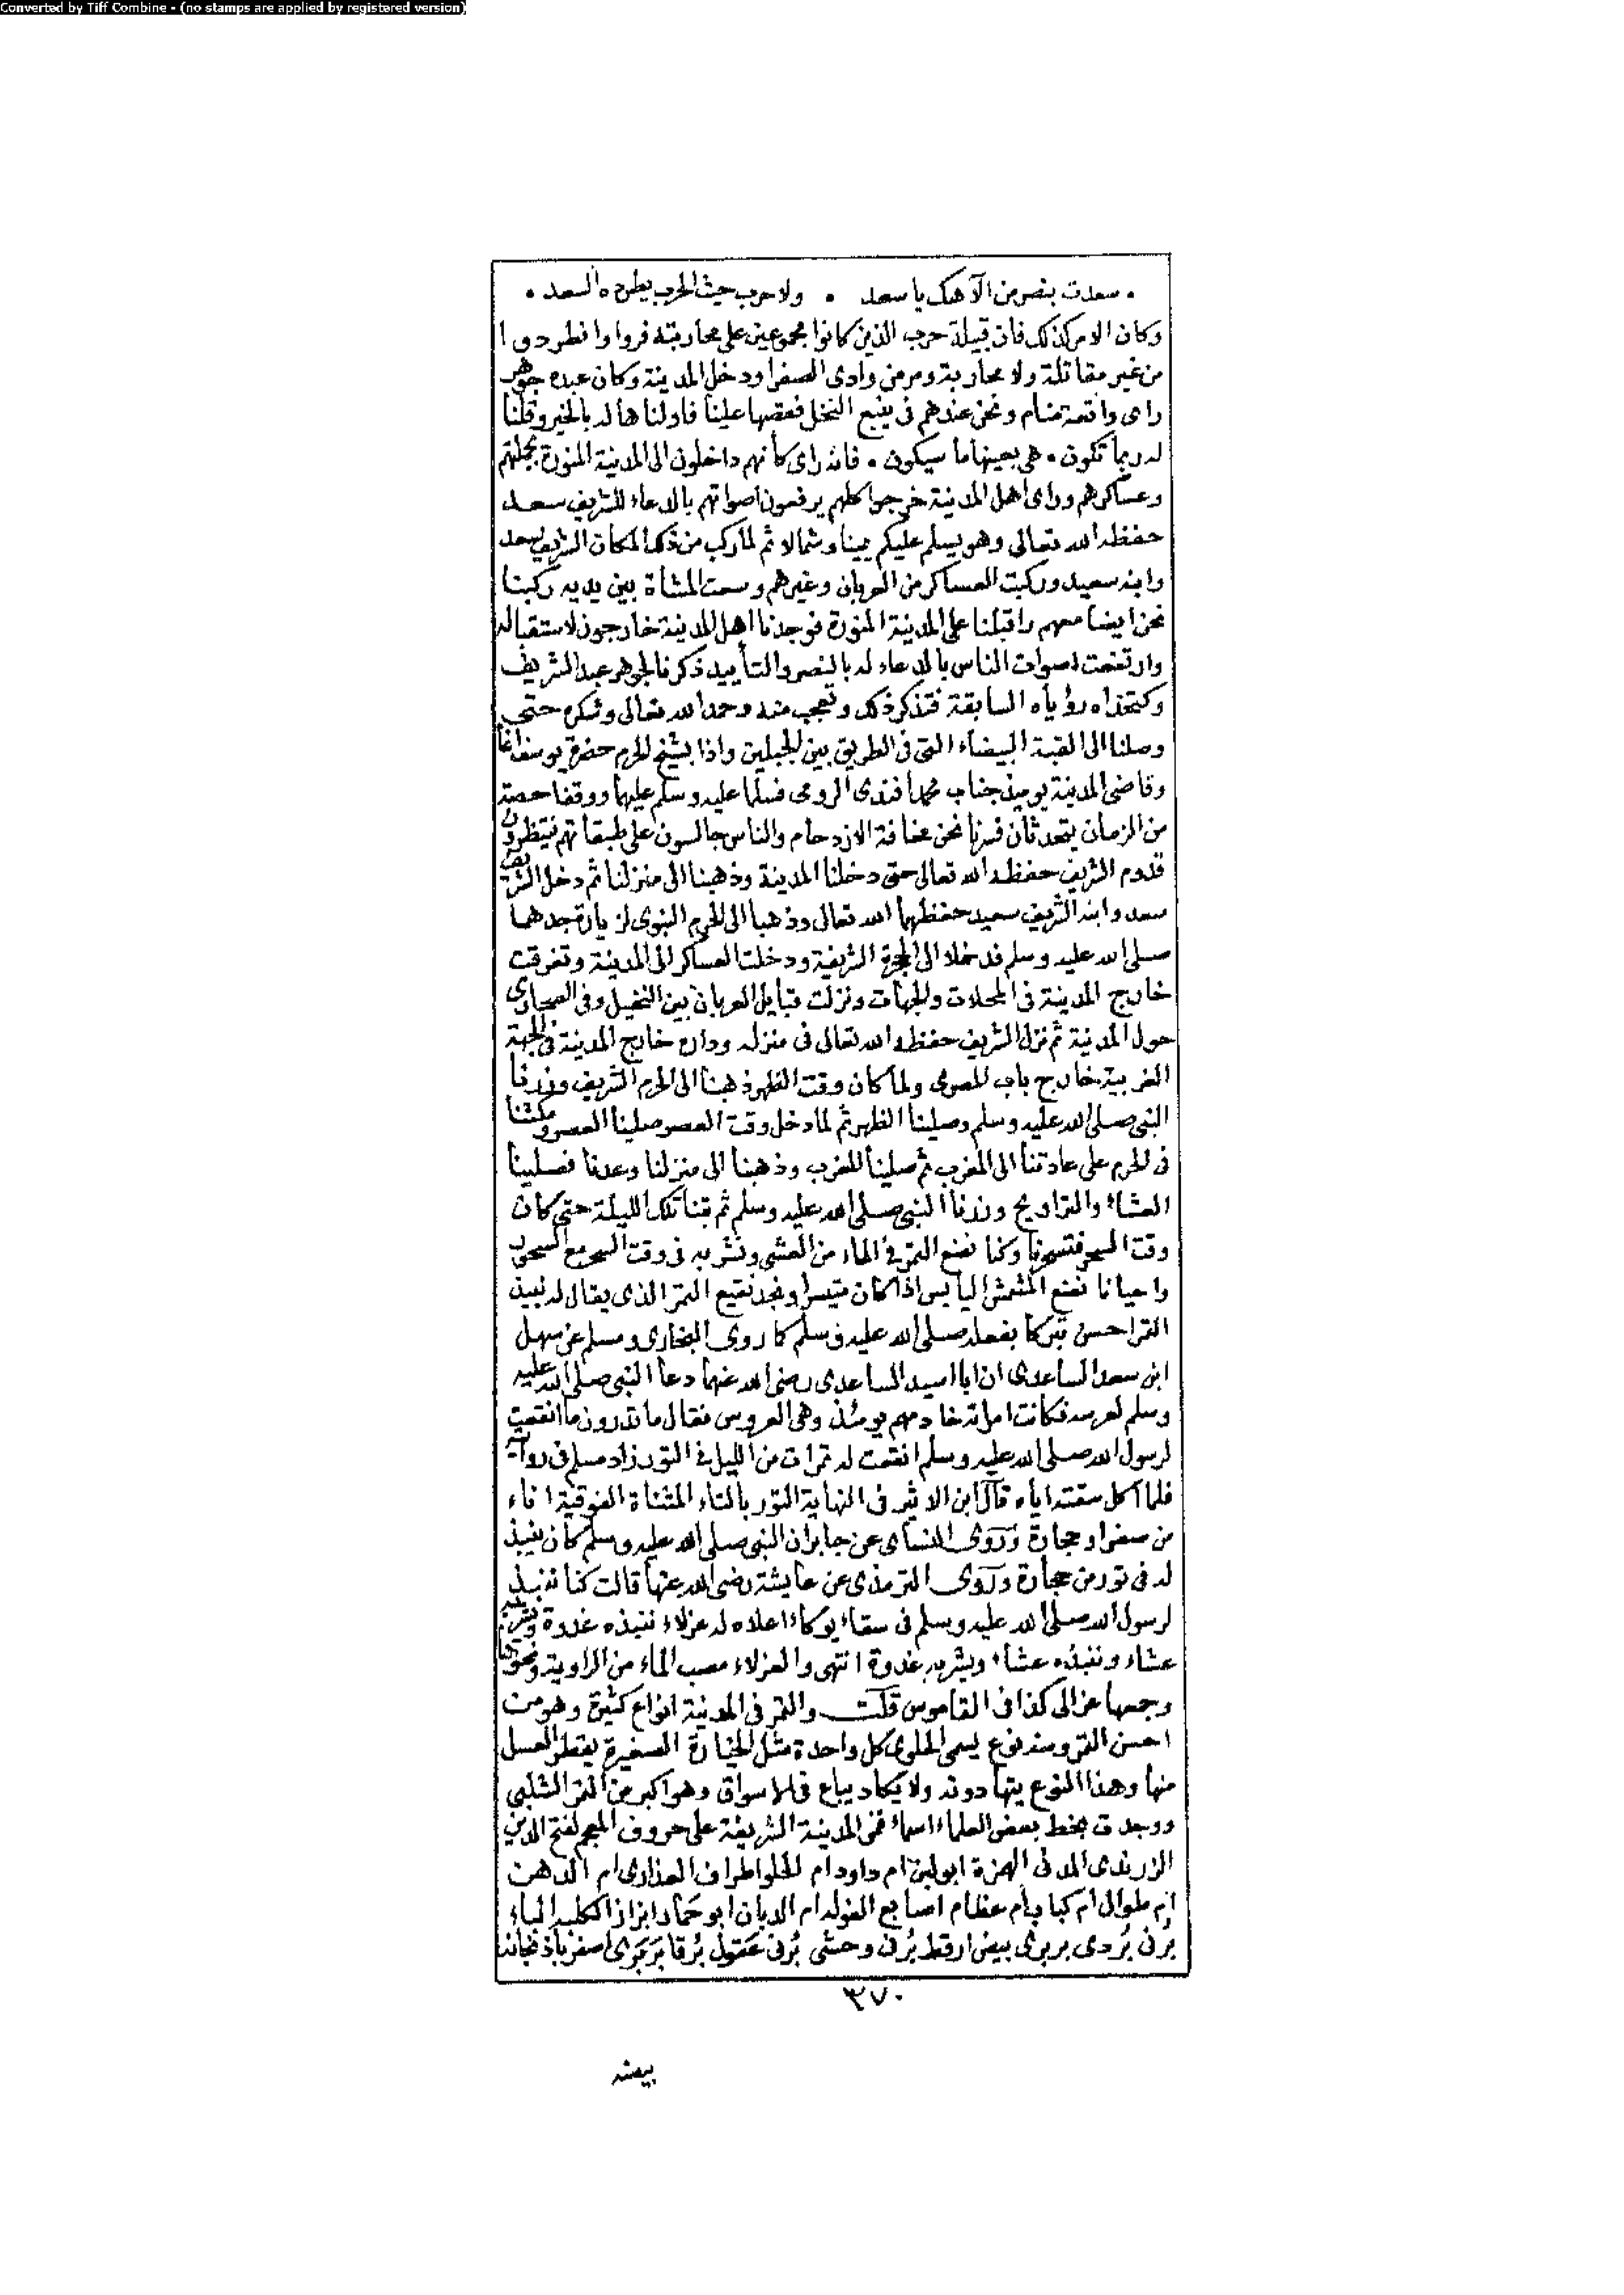 Converted by Tiff Combine - (no stamps are applied by registered version)
. سعدت بنصر من الآهك يا سعد . ولا حرب حيث الحرب يطرده السعد .
وكان الامر كذلك فان قبيلة حرب الذين كانوا مجموعين على محاربته فروا وانطردوا
من غير مقاتلة ولا محاربة ومر من وادى الصفرا ودخل المدينة وكان عبده جوهر
راى واقعة منام ونحن عندهم فى ينبع النخل فقصها علينا فاولناها له بالخير وقلنا
له ربما تكون . هى بعينها ما سيكون . فانه راى كانهم داخلون الى المدينة المنورة بجملتهم
وعساكرهم وراى اهل المدينة خرجوا كلهم يرفعون اصواتهم بالدعاء للشريف سعد
حفظه الله تعالى وهو يسلم عليكم يمينا وشمالا ثم لما ركب من ذلك المكان الشريف سعد
وابنه سعيد وركبت العساكر من العربان وغيرهم وسعت المشاة بين يديه ركبنا
نحن ايضا معهم واقبلنا على المدينة المنورة فوجدنا اهل المدينة خارجون لاستقباله
وارتفعت اصوات الناس بالدعاء له بالنصر والتأييد ذكرنا لجوهر عبد الشريف
رؤياه السابقة فتذكر ذلك وتعجب منه وحمد الله تعالى وشكره حتى
وصلنا الى القبة البيضاء التى فى الطريق بين الجبلين واذا بشيخ الحرم حضرة يوسف اغا
وقاضى المدينة يوميذ جناب محمد افندى الرومى فسلما عليه وسلم عليهما ووقفا حصة
من الزمان يتحدثان فسرنا نحن مخافة الازدحام والناس جالسون على طبقاتهم ينتظرون
قدوم الشريف حفظه الله تعالى حتى دخلنا المدينة وذهبنا الى منزلنا ثم دخل الشريف
سعد وابنه الشريف سعيد حفظهما الله تعالى وذهبا الى الحرم النبوى لزيارة جدهما
صلى الله عليه وسلم فدخلا الى الحجرة الشريفة ودخلت العساكر الى المدينة وتفرقت
خارج المدينة فى المحلات والجهات ونزلت قبايل العربان بين النخيل وفى الصحارى
حول المدينة ثم نزل الشريف حفظه الله تعالى فى منزله وداره خارج المدينة فى الجهة
الغربية خارج باب المصرى ولما كان وقت الظهر ذهبنا الى الحرم الشريف وزرنا
النبى صلى الله عليه وسلم وصلينا الظهر ثم لما دخل وقت العصر صلينا العصر ومكثنا
فى الحرم على عادتنا الى المغرب ثم صلينا المغرب وذهبنا الى منزلنا وعدنا فصلينا
العشاء والتراويح وزرنا النبى صلى الله عليه وسلم ثم بتنا تلك الليلة حتى كان
وقت السحر فتسحرنا وكنا نضع التمر فى الماء من العشى ونشربه فى وقت السحر مع السحور
واحيانا نضع المشمش اليابس اذا كان متيسرا ونجد نقيع التمر الذى يقال له نبيذ
التمر احسن تبركا بفعله صلى الله عليه وسلم كما روى البخارى ومسلم عن سهل
ابن سعد الساعدى ان ابا اسيد الساعدى رضى الله عنهما دعا النبى صلى الله عليه
وسلم لعرسه فكانت امراته خادمهم يومئذ وهى العروس فقال ما تدرون ما انقعت
لرسول الله صلى الله عليه وسلم انقعت له تمرات من الليل فى التور زاد مسلم فى رواية
فلما اكل سقته اياه قال ابن الاثير فى النهاية التور بالتاء المثناة الفوقية اناء
من صفر او حجارة وروى النساى عن جابر ان النبى صلى الله عليه وسلم كان ينبذ
له فى تور من حجارة وروى الترمذى عن عايشة رضى الله عنها قالت كنا ننبذ
لرسول الله صلى الله عليه وسلم فى سقاء يوكاء اعلاه له عزلاء ننبذه غدوة ويشربه
عشاء وننبذه عشاء ويشربه غدوة انتهى والعزلاء مصب الماء من الراوية ونحوها
وجمعها عزالى كذا فى القاموس قلت والتمر فى المدينة انواع كثيرة وهو من
احسن التمر ومنه نوع يسمى الحلوى كل واحدة مثل الخيارة الصغيرة يقطر العسل
منها وهذا النوع يتهادونه ولا يكاد يباع فى الاسواق وهو اكبر من التمر الشلبى
ووجدت بخط بعض العلماء اسماء تمر المدينة الشريفة على حروف المعجم لفتح الدين
الزرندى المدنى الهمزة ابو لبن ام داود ام الحلو اطراف العذارى ام الدهن
ام طوال ام كباد ام عظام اصابع الغوله ام الديان ابو حماد ابزاز الكلبه الباء
برنى بُردى بربرى بيض ارقط بُرنى وحشى بُرنى عَقول بُرقا بَربَرى اصفر باذنجانه
٣٧٠
بيضه